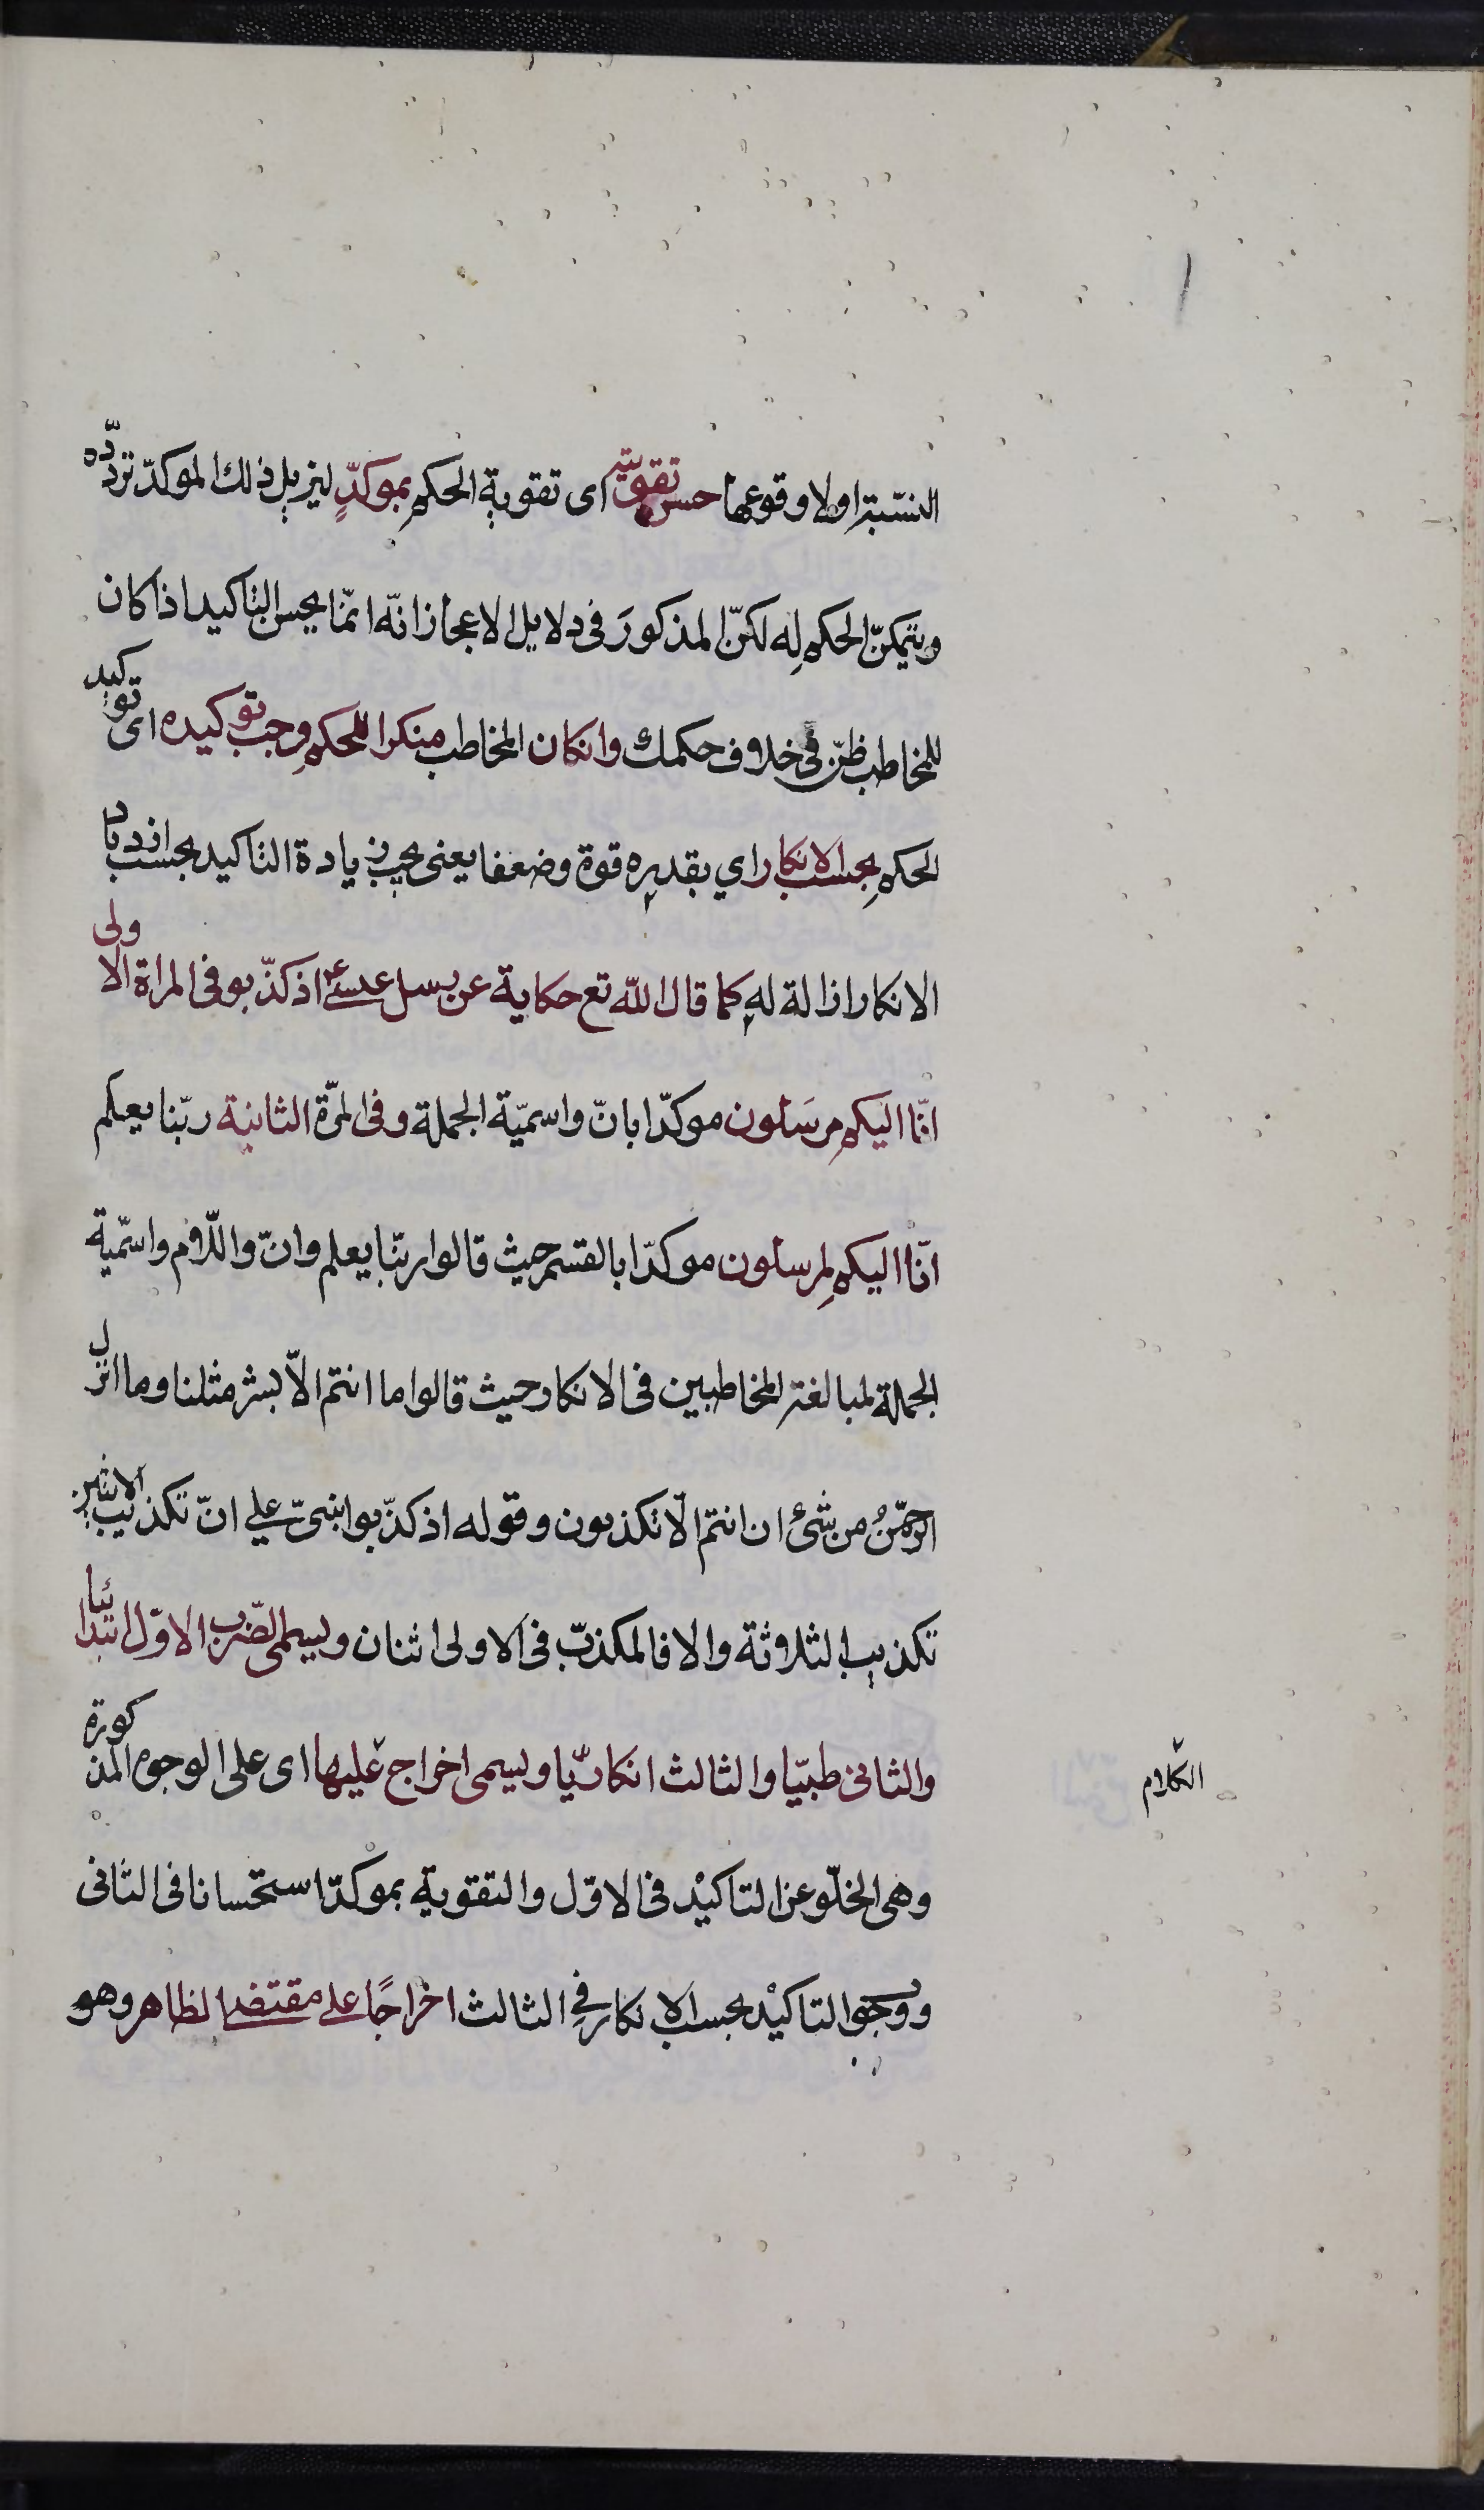 النسبة اولا وقوعها حسن تقويته اى تقوية الحكم بموكدّ ليزيل ذلك الموكدّ تردّده
ويتمكنّ الحكم له لكنّ المذكورَ فى دلايل الاعجاز انّه انمّا يحسن التاكيد اذا كان
للمخاطب ظنّ فى خلاف حكمك وانكان المخاطب منكرا للحكم وجب توكيده اى توكيد
الحكم بحسب الانكار اي بقدره قوة وضعفا يعنى يجب زيادة التاكيد بحسب ازدياد
الانكار ازالة له كما قال الله تع حكاية عن رسل عيسى ع اذ كذّبوا فى المراة الاولى
انّا اليكم مرسَلون موكدّا بانّ واسميّة الجملة وفى المرّة الثانية ربّنا يعلم
انّا اليكم لمرسلون موكدّا بالقسم حيث قالوا ربّنا يعلم وانّ واللّام واسمّية
الجملة لمبالغة المخاطبين فى الانكار حيث قالوا ما انتم الاّ بشر مثلنا وما انزل
الرحمّنُ من شئ ان انتم الّا تكذبون وقوله اذ كذّبوا مبنىّ على انّ تكذيب الاثنين
تكذيب الثلاثة والا فالمكذبّ فى الاولى اثنان ويسمى الضّرب الاوّل ابتدائيا
والثانى طلبيّا والثالث انكاريّا ويسمى اخراج عليها اى على الوجوه المذكورة
الكلام
وهى الخلّو عن التاكيْد فى الاوّل والتقوية بموكدّ استحسانا فى الثانى
ووجوب التاكيْد بحسب الانكار فى الثالث اخراجًا على مقتضى الظاهر وهو